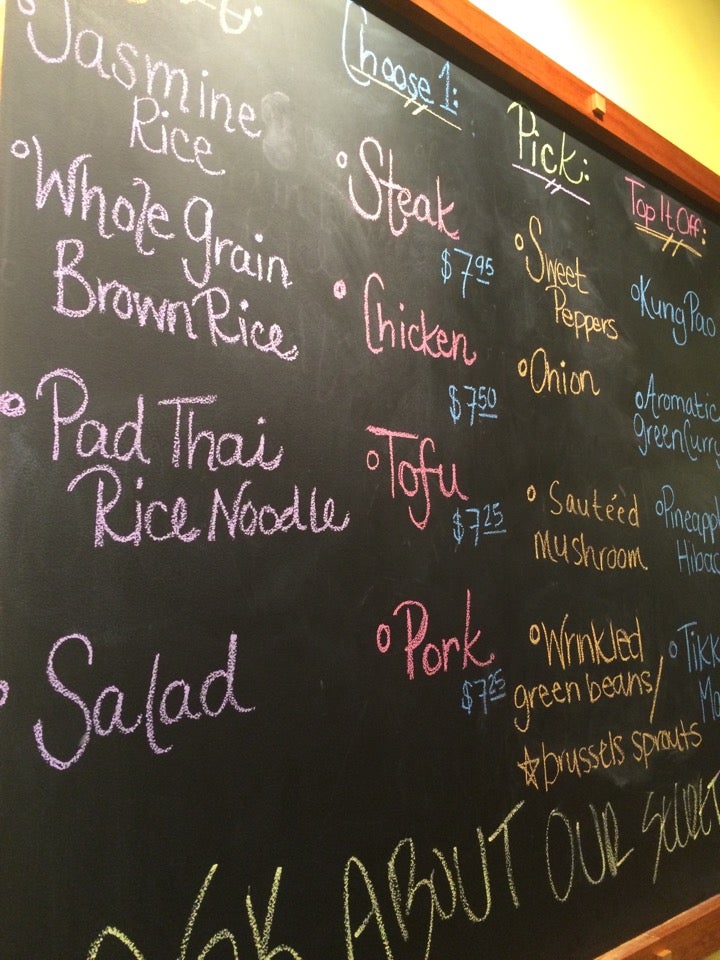 Jasmine
Rice
Whole Grain
Brown Rice
Pad Thai
Rice Noodle
Salad
Choose 1:
Steak
$7.95
Chicken
$7.50
Tofu
$7.25
Pork
$7.25
Pick:
Sweet
Peppers
Onion
Sauteéd
Mushroom
Wrinkled
green beans/
brussels sprouts
Top It Off:
Kung Pao
Aromatic
green Curry
Pineappl
Hibac
Tikk
Ma
ASK ABOUT OUR